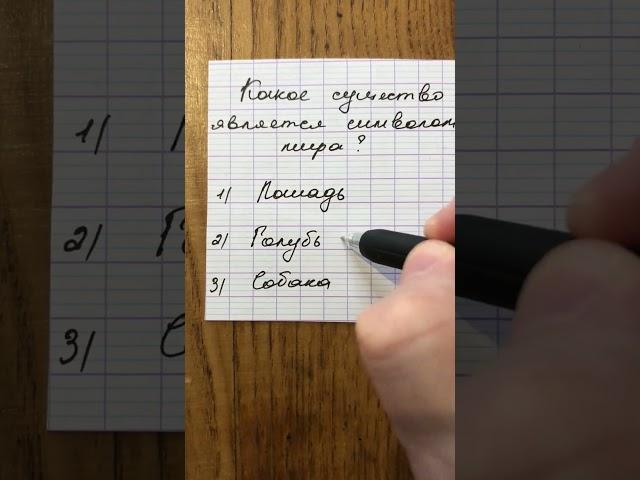 Какое существо
является символом
мира?
1) Лошадь
2) Голубь
3) Собака